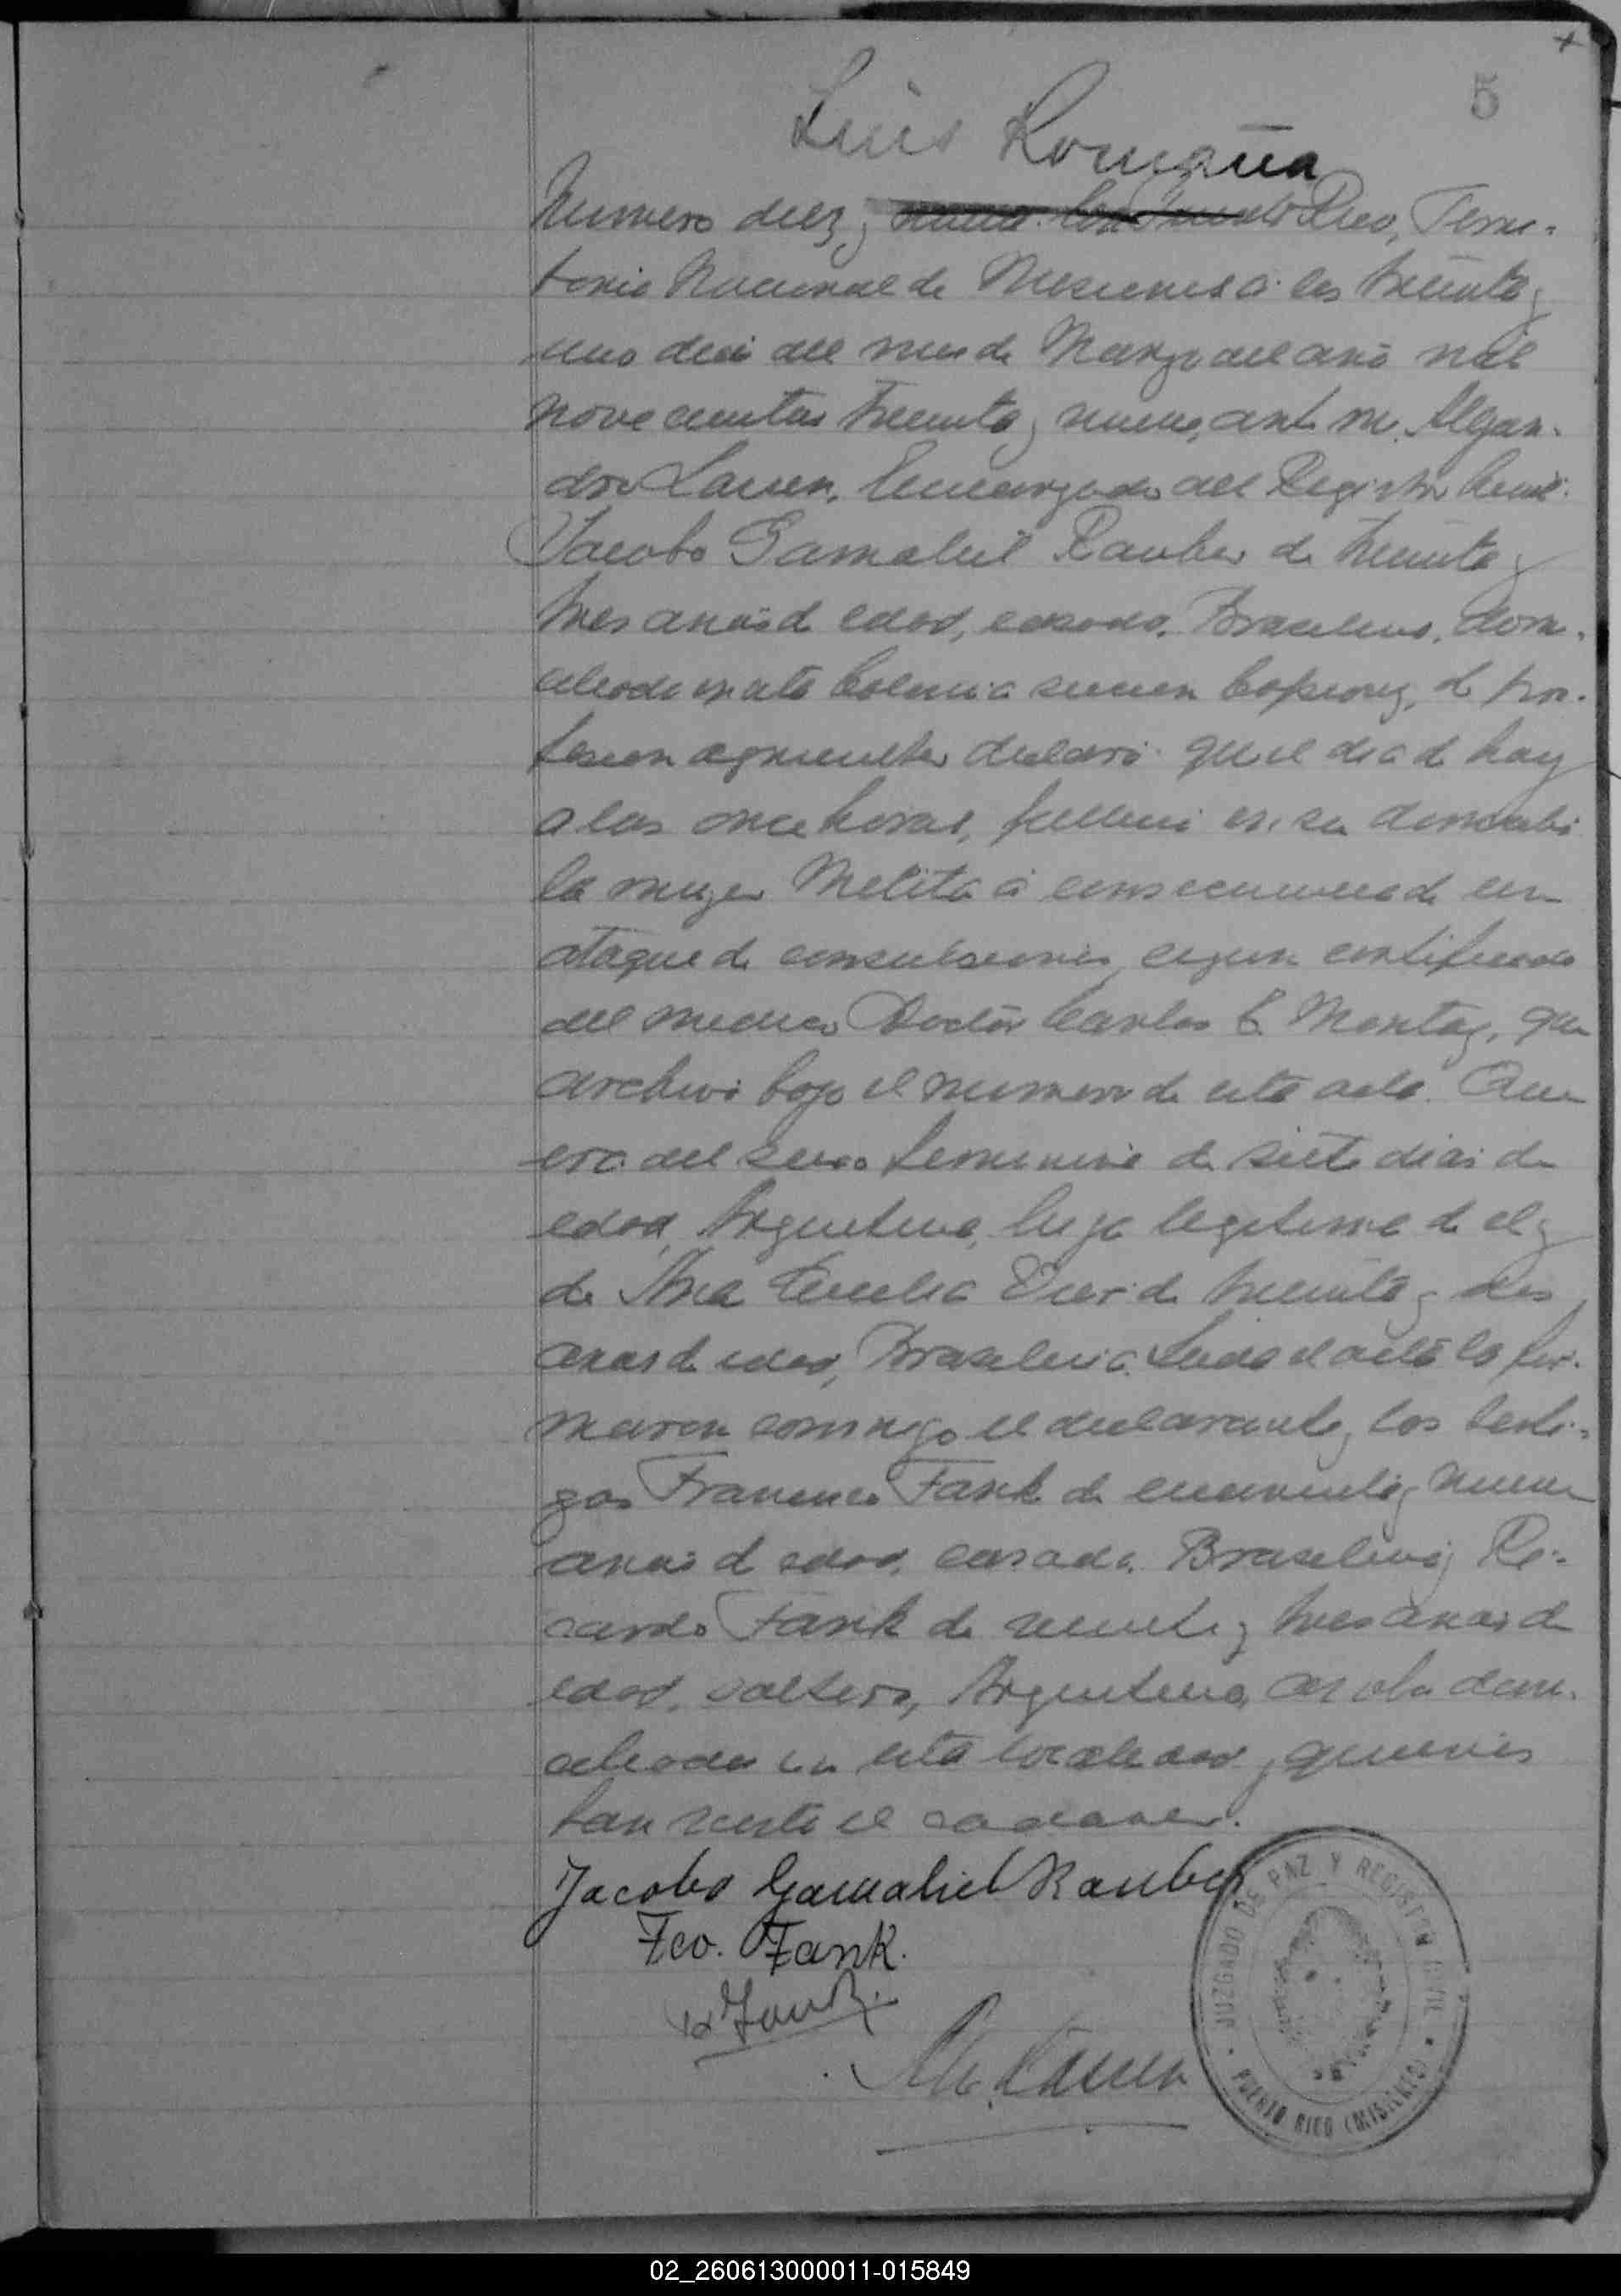 5
Luis Romaña
Numero diez y Rico, Terri-
torio Nacional de Misiones a los treinta y
uno dia del mes de Marzo del año mil
novecientos treinta y nueve, ante mi Alejan-
dro Encargado del Registro Civil:
Jacobo Gamaliel Rauber de treinta y
tres años de edad, casado, Brasilero, domi-
ciliado en esta Colonia Capiovy, de pro-
fesion agricultor declaró: que el dia de hoy
a las once horas, fallecio en su domicilio
la mujer Melita a consecuencia de un
ataque de convulsiones, segun certificado
del medico Doctor Carlos que
archivo bajo el numero de esta acta. Que
era del sexo femenino de siete dias de
edad, Argentina, hija legitima de el y
de Ana de treinta y dos
años de edad, Brasilera. Leida el acta la fir-
maron conmigo el declarante y los testi-
gos Francisco Fank de cincuenta y nueve
años de edad, casado, Brasilero y Ri-
cardo Fank de veinte y tres años de
edad, soltero, Argentino, domi-
ciliados en esta localidad y quienes
han visto el cadaver.
Jacobo Gamaliel Rauber
Fco. Fank.
R Fank.
JUZGADO DE PAZ Y REGISTRO CIVIL
PUERTO RICO (MISIONES)
02_260613000011-015849